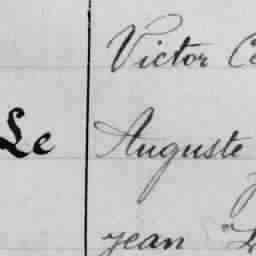 Victor
Le Auguste
jean